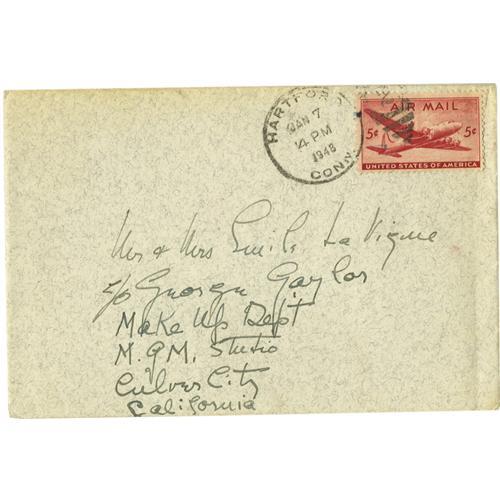 HARTFORD
JAN 7
4 PM
1948
CONN.
AIR MAIL
5¢ 5¢
UNITED STATES OF AMERICA
Mr & Mrs Emile La Vigne
c/o George Gaylor
Make Up Dept
M.G.M. Studio
Culver City
California